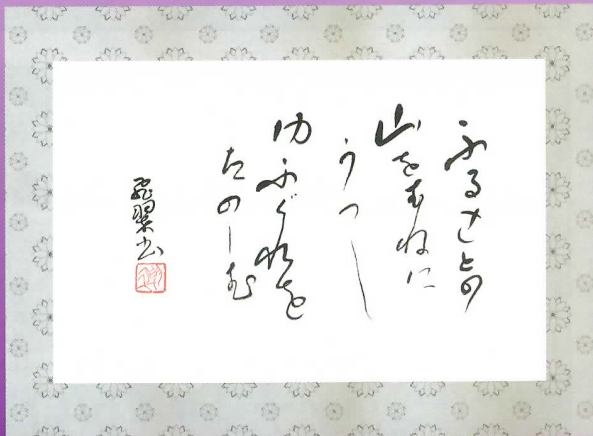 ふるさとの
山をむねに
うつし
ゆふぐれを
たのしむ
翠書